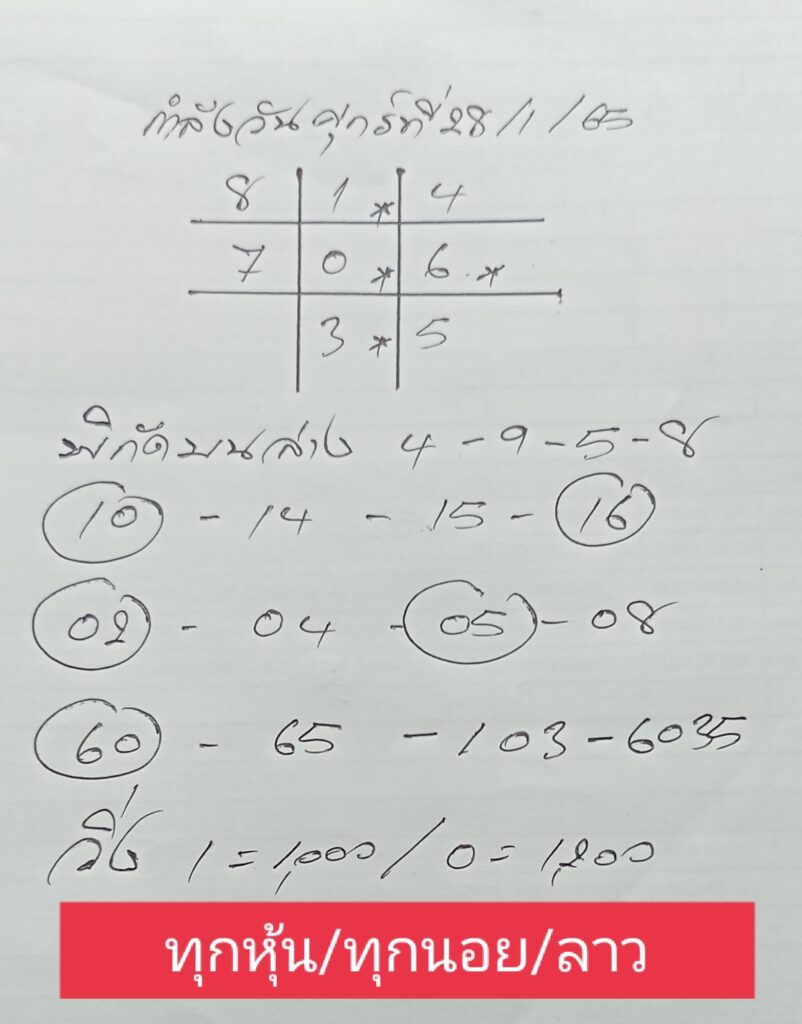 กำลังวันศุกร์ที่ 28/1/65
8 1* 4
7 0* 6.*
3* 5
พิกัดบนล่าง 4-9-5-8
10 - 14 - 15 - 16
02 - 04 - 05 - 08
60 - 65 - 103 - 6035
วิ่ง 1=1,000/0=1,200
ทุกหุ้น/ทุกนอย/ลาว